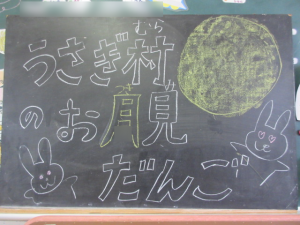 うさぎ村
むら
のお月見
だんご